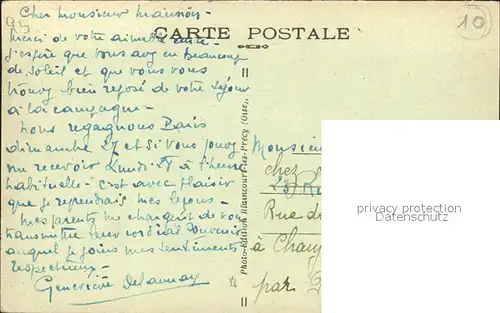 Cher Monsieur Mausion -
CARTE POSTALE
10
Merci de votre aimable carte -
J'espère que vous avez eu beaucoup
de soleil et que vous vous
trouvez bien reposé de votre séjour
à la campagne -
Nous regagnons Paris
dimanche 27 et si vous pouvez
me recevoir Lundi 28 à l'heure
habituelle - c'est avec plaisir
que je reprendrai mes leçons -
Mes parents me chargent de vous
transmettre leur cordial souvenir
auquel je joins mes sentiments
respectueux -
Geneviève Delaunay
Photo-Edition Blaincourt-les-Précy (Oise)
Monsieur
chez
Rue de
à Chau
par
privacy protection
Datenschutz